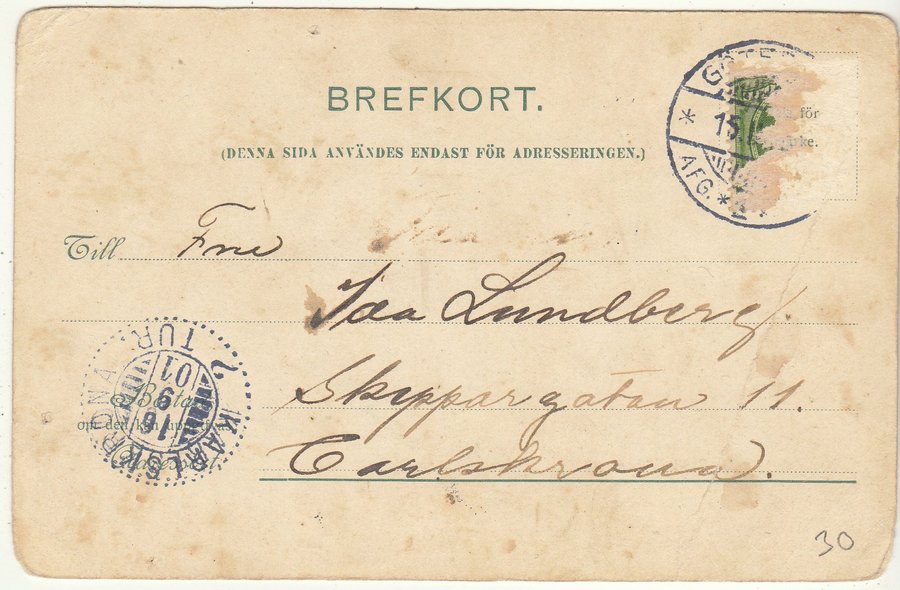 BREFKORT.
(DENNA SIDA ANVÄNDES ENDAST FÖR ADRESSERINGEN.)
GÖTE
* 15
AFG. * 2
för
Till Fru
Ida Lundberg
Skeppargatan 11.
Carlskrona.
KARLSKRONA
2 TUR.
16 9 01
om den kan
30